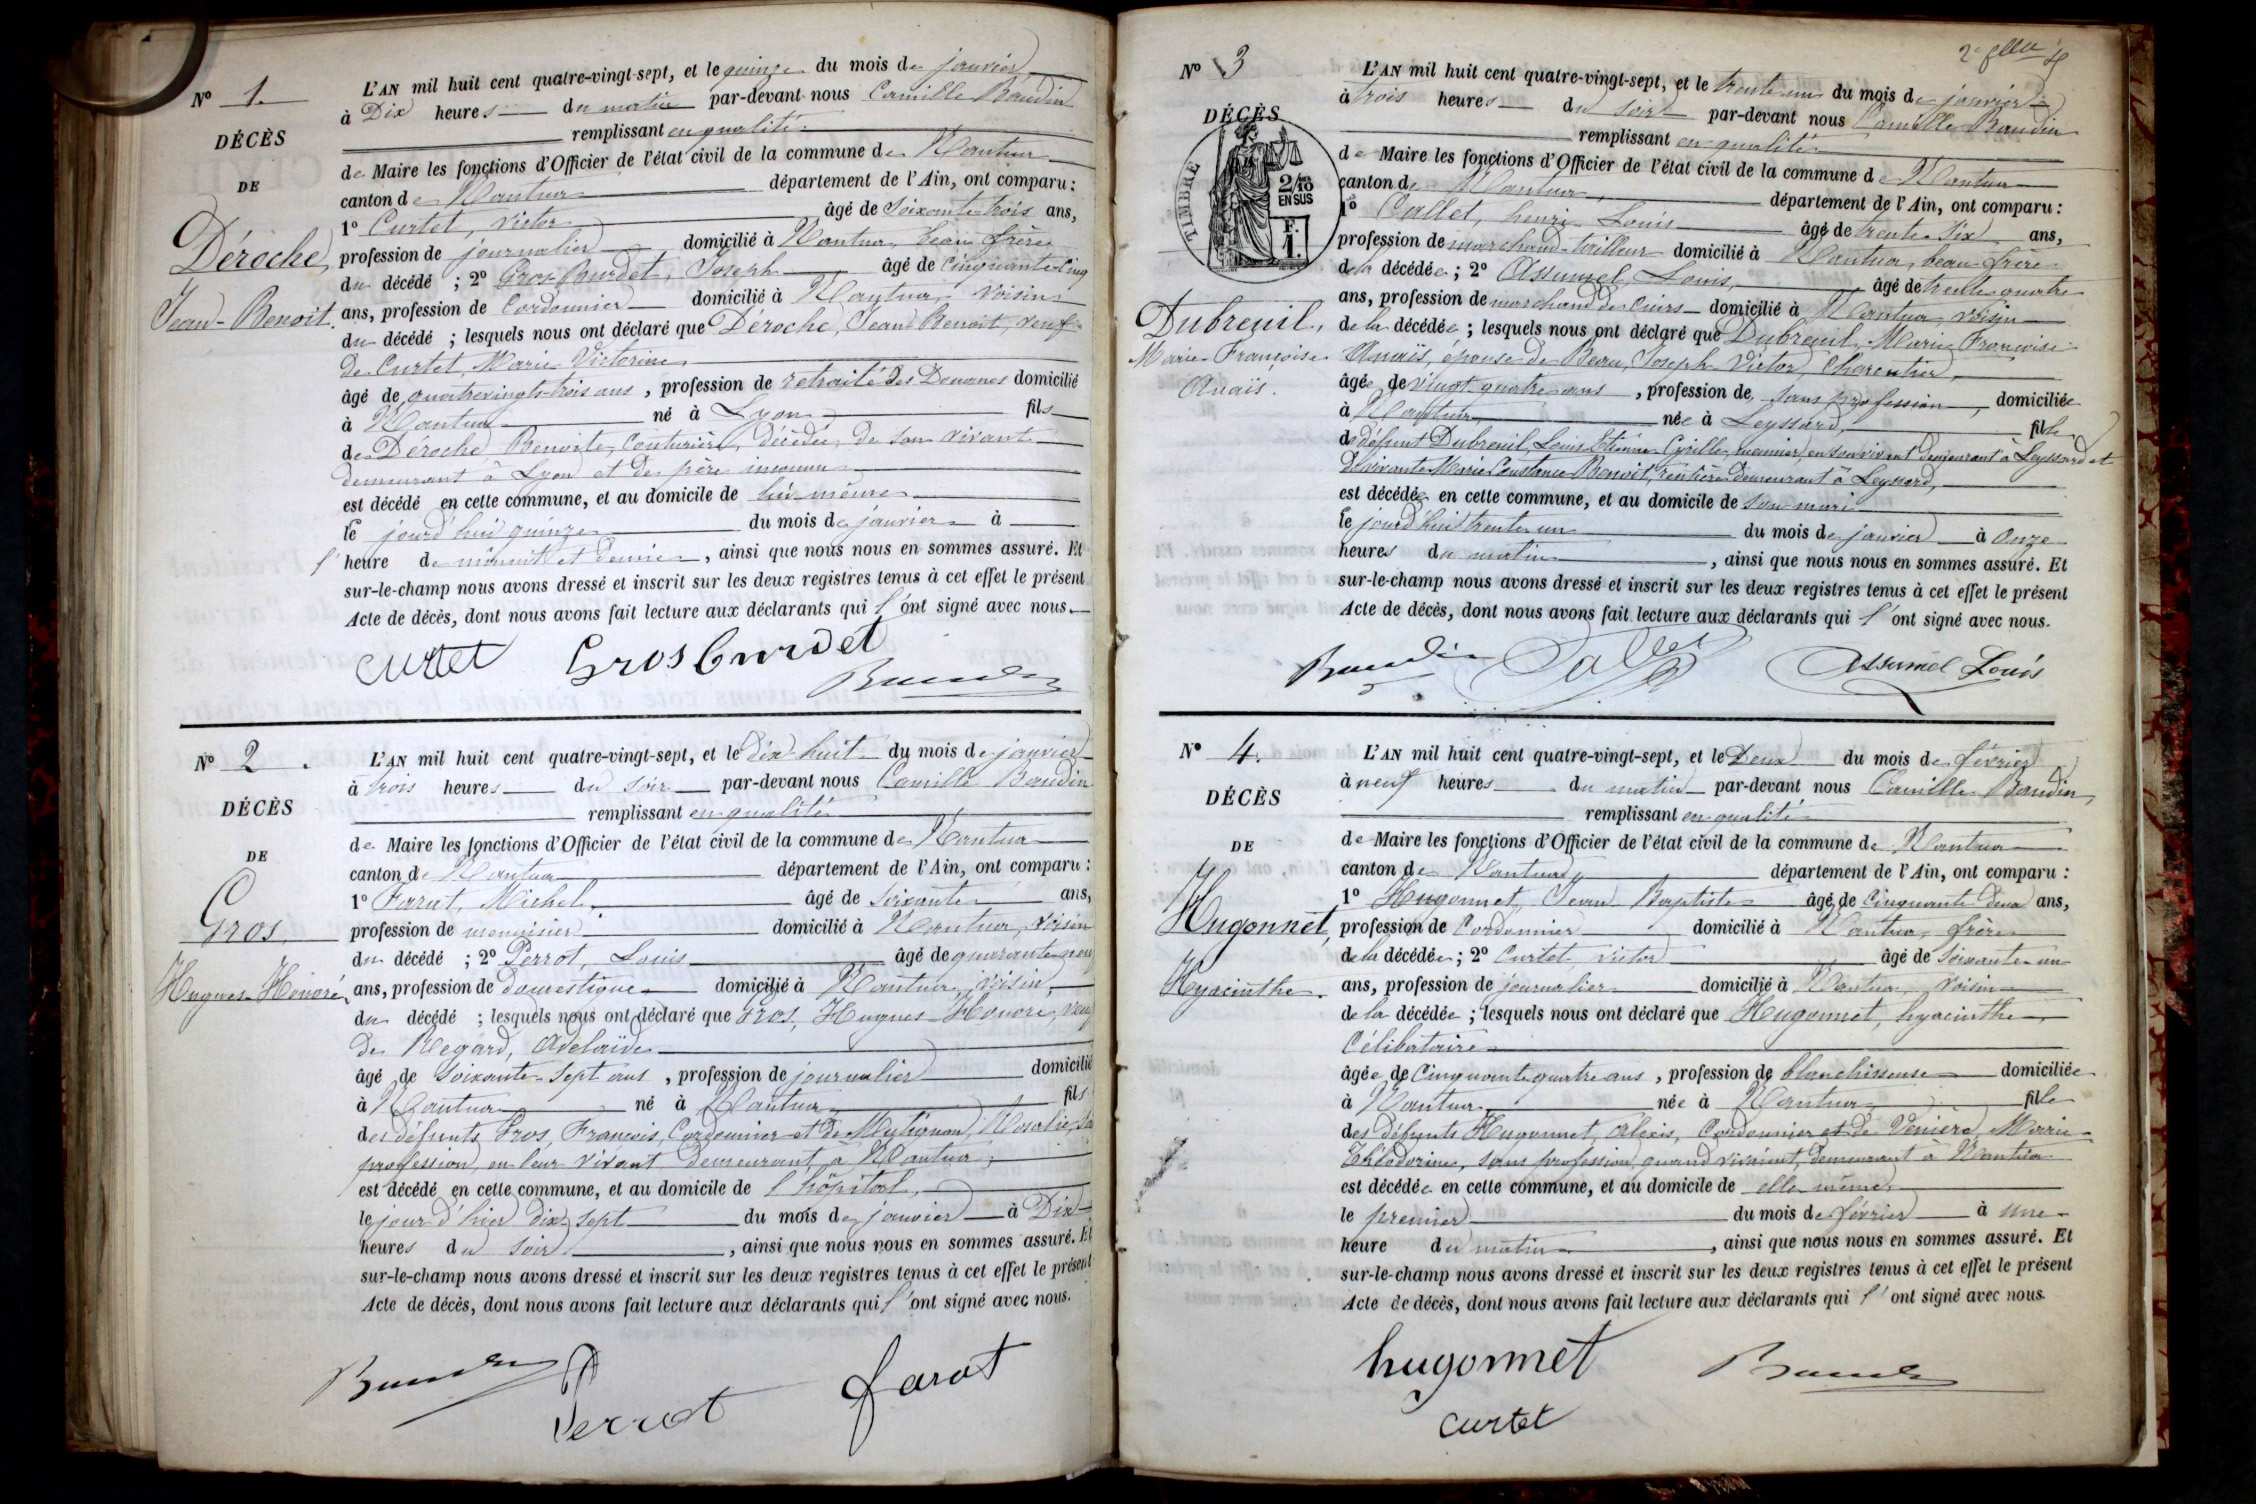 N° 1.
DÉCÈS
DE
Déroche,
Jean-Benoit.
L'AN mil huit cent quatre-vingt-sept, et le quinze du mois de janvier
à Dix heures du matin par-devant nous Camille Baudin
remplissant en qualité
de Maire les fonctions d'Officier de l'état civil de la commune de Nantua
canton de Nantua département de l'Ain, ont comparu :
1° Curtet, Victor âgé de Soixante trois ans,
profession de journalier domicilié à Nantua, beau frère
du décédé ; 2° Gros Gurdet, Joseph âgé de Cinquante Cinq
ans, profession de Cordonnier domicilié à Nantua, voisin
du décédé ; lesquels nous ont déclaré que Déroche, Jean Benoit, veuf
de Curtet, Marie Victorine
âgé de quatrevingt-trois ans, profession de retraité des Douanes domicilié
à Nantua né à Lyon fils
de Déroche Benoite, Couturière, décédée, de son vivant
demeurant à Lyon et de père inconnu
est décédé en cette commune, et au domicile de lui-même
le jourd'hui quinze du mois de janvier à
l' heure de minuit et demie, ainsi que nous nous en sommes assuré. Et
sur-le-champ nous avons dressé et inscrit sur les deux registres tenus à cet effet le présent
Acte de décès, dont nous avons fait lecture aux déclarants qui l'ont signé avec nous.
Curtet Gros Gurdet
Baudin
N° 2.
DÉCÈS
DE
Gros,
Hugues-Honoré.
L'AN mil huit cent quatre-vingt-sept, et le dix-huit du mois de janvier
à trois heures du soir par-devant nous Camille Baudin
remplissant en qualité
de Maire les fonctions d'Officier de l'état civil de la commune de Nantua
canton de Nantua département de l'Ain, ont comparu :
1° Farat, Michel, âgé de Soixante ans,
profession de menuisier domicilié à Nantua, voisin
du décédé ; 2° Perrot, Louis âgé de quarante neuf
ans, profession de domestique domicilié à Nantua, voisin,
du décédé ; lesquels nous ont déclaré que Gros, Hugues-Honoré, veuf
de Regard, Adelaïde
âgé de Soixante-sept ans, profession de journalier domicilié
à Nantua né à Nantua fils
des défunts Gros, François, Cordonnier et de Rosalie, sans
profession, en leur vivant demeurant à Nantua,
est décédé en cette commune, et au domicile de l'hôpital,
le jour d'hier dix-sept du mois de janvier à Dix
heures du soir, ainsi que nous nous en sommes assuré. Et
sur-le-champ nous avons dressé et inscrit sur les deux registres tenus à cet effet le présent
Acte de décès, dont nous avons fait lecture aux déclarants qui l'ont signé avec nous.
Baudin Perrot farat
N° 3
DÉCÈS
TIMBRE
2/10 EN SUS
F. 1.
Dubreuil,
Marie-Françoise
Anaïs.
L'AN mil huit cent quatre-vingt-sept, et le trente-un du mois de janvier
à trois heures du soir par-devant nous Camille Baudin
remplissant en qualité
de Maire les fonctions d'Officier de l'état civil de la commune de Nantua
canton de Nantua, département de l'Ain, ont comparu :
1° Callet, henri Louis âgé de trente-six ans,
profession de marchand-tailleur domicilié à Nantua, beau frère
de la décédée ; 2° Assumel, Louis, âgé de trente quatre
ans, profession de marchand de Cuirs domicilié à Nantua, voisin
de la décédée ; lesquels nous ont déclaré que Dubreuil, Marie Françoise
Anaïs, épouse de Beau, Joseph-Victor, Charcutier,
âgée de vingt-quatre ans, profession de sans profession, domiciliée
à Nantua, née à Leyssard, fille
de défunt Dubreuil, Louis Etienne Cyrille, meunier, en son vivant demeurant à Leyssard et
de vivante Marie Constance Benoit, rentière demeurant à Leyssard,
est décédée en cette commune, et au domicile de son mari
le jourd'hui trente un du mois de janvier à onze
heures du matin, ainsi que nous nous en sommes assuré. Et
sur-le-champ nous avons dressé et inscrit sur les deux registres tenus à cet effet le présent
Acte de décès, dont nous avons fait lecture aux déclarants qui l'ont signé avec nous.
Baudin Callet Assumel Louis
N° 4.
DÉCÈS
DE
Hugonnet,
Hyacinthe.
L'AN mil huit cent quatre-vingt-sept, et le Deux du mois de février
à neuf heures du matin par-devant nous Camille Baudin,
remplissant en qualité
de Maire les fonctions d'Officier de l'état civil de la commune de Nantua
canton de Nantua, département de l'Ain, ont comparu :
1° Hugonnet, Jean Baptiste âgé de Cinquante deux ans,
profession de Cordonnier domicilié à Nantua, frère
de la décédée ; 2° Curtet, victor âgé de Soixante un
ans, profession de journalier domicilié à Nantua, voisin
de la décédée ; lesquels nous ont déclaré que Hugonnet, hyacinthe,
Célibataire
âgée de Cinquante quatre ans, profession de blanchisseuse domiciliée
à Nantua, née à Nantua, fille
des défunts Hugonnet, Alexis, Cordonnier et de Marie
sans profession, quand vivaient, demeurant à Nantua
est décédée en cette commune, et au domicile de elle-même,
le premier du mois de février à une
heure du matin, ainsi que nous nous en sommes assuré. Et
sur-le-champ nous avons dressé et inscrit sur les deux registres tenus à cet effet le présent
Acte de décès, dont nous avons fait lecture aux déclarants qui l'ont signé avec nous.
hugonnet Baudin
Curtet